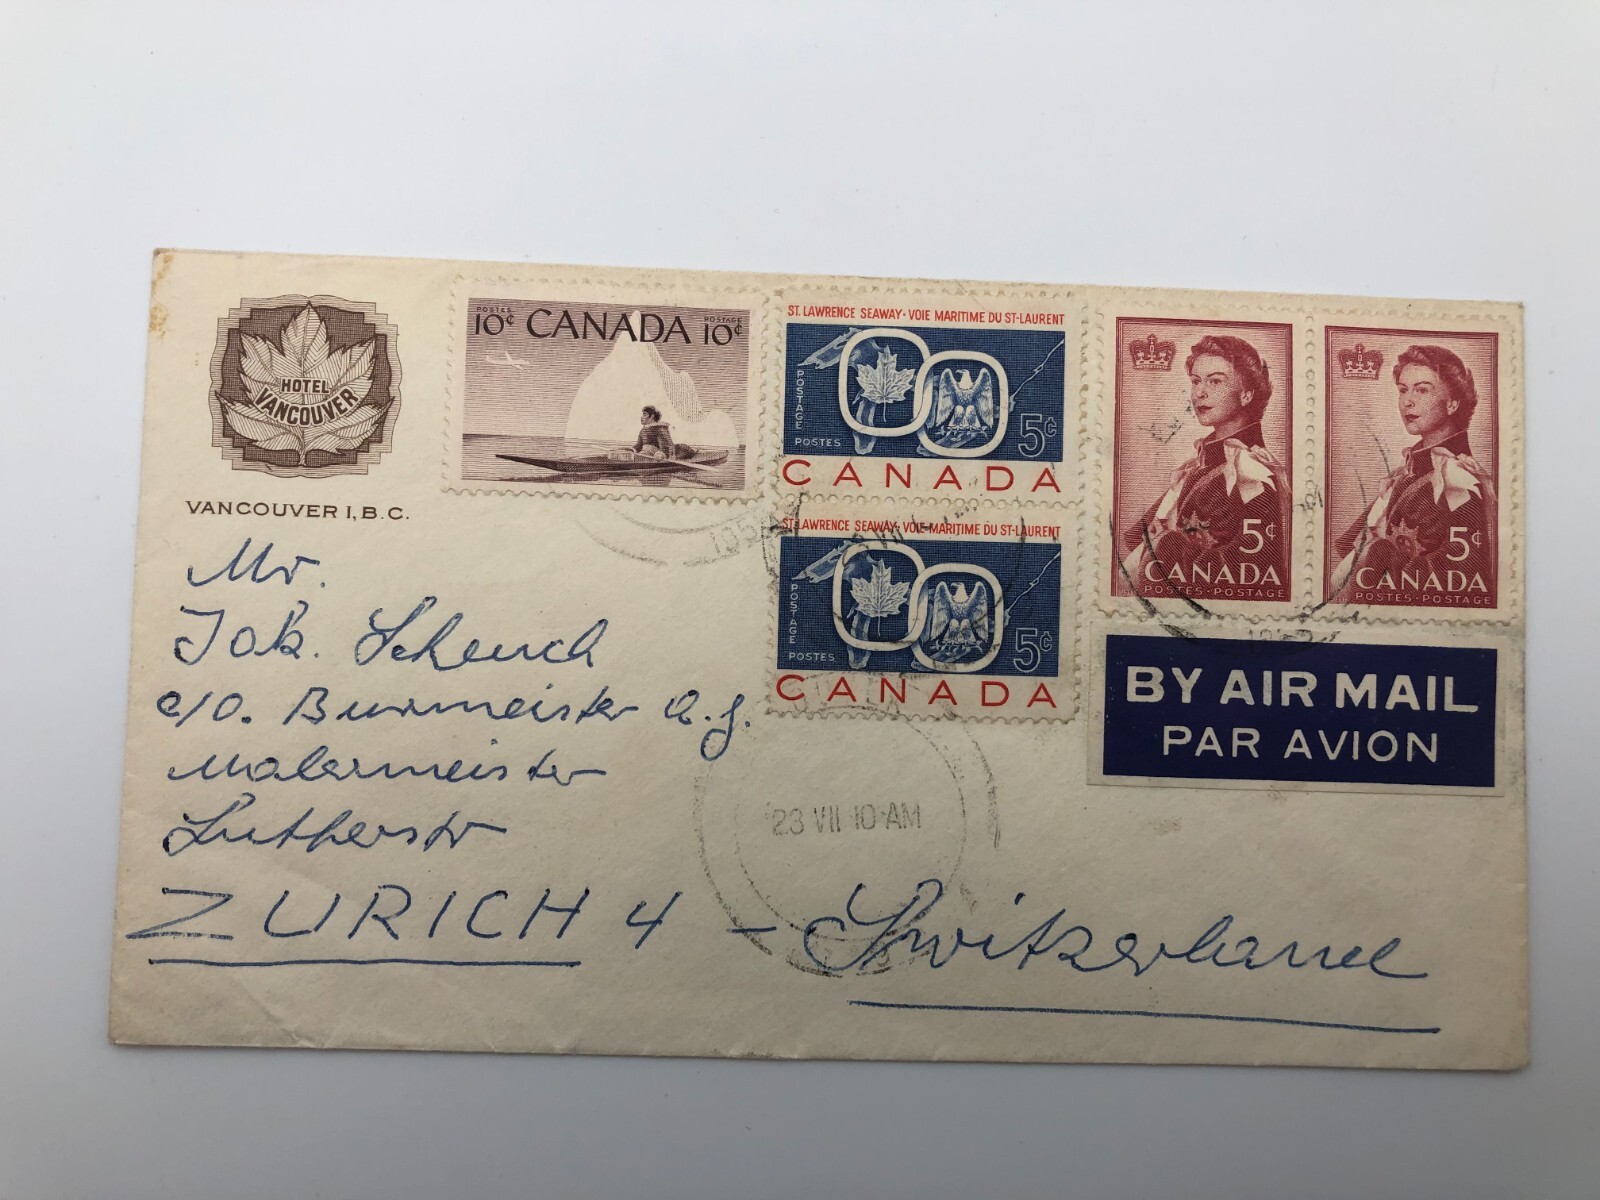 HOTEL
VANCOUVER
VANCOUVER 1, B.C.
POSTES POSTAGE
10¢ CANADA 10¢
ST. LAWRENCE SEAWAY · VOIE MARITIME DU ST-LAURENT
POSTAGE
POSTES 5¢
CANADA
ST. LAWRENCE SEAWAY · VOIE MARITIME DU ST-LAURENT
POSTAGE
POSTES 5¢
CANADA
5¢
CANADA
POSTES · POSTAGE
5¢
CANADA
POSTES · POSTAGE
BY AIR MAIL
PAR AVION
Mr.
Jok. Schench
c/o. Burmeister a.g.
Malermeister
Lutherstr
ZURICH 4 – Switzerland
23 VII 10 AM